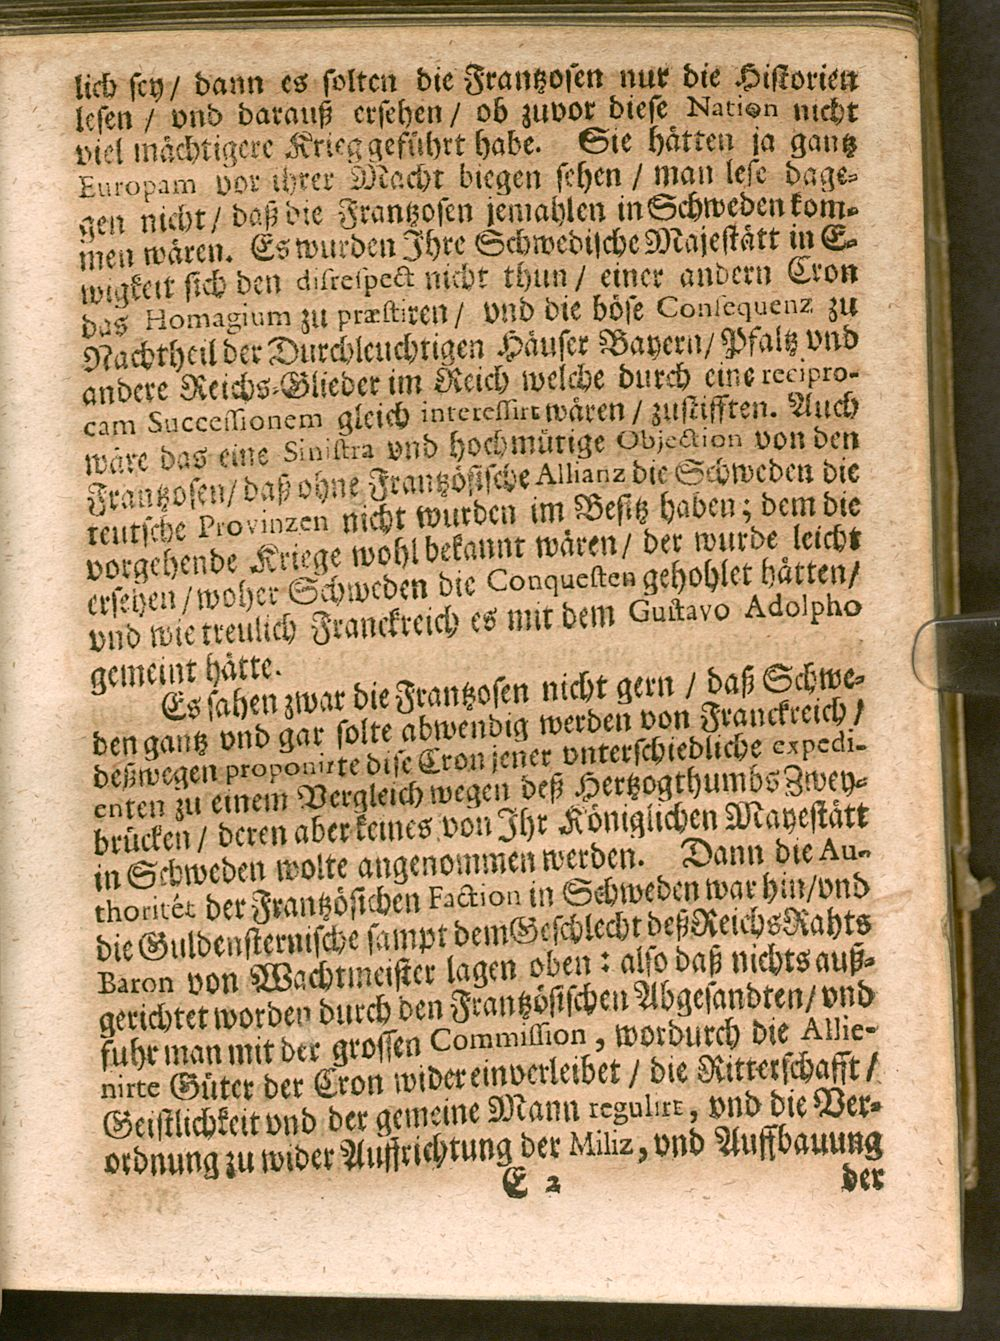 lich sey / dann es solten die Frantzosen nur die Historien
lesen / vnd darauß ersehen / ob zuvor diese Nation nicht
viel mächtigere Krieg geführt habe. Sie hätten ja gantz
Europam vor ihrer Macht biegen sehen / man lese dage-
gen nicht / daß die Frantzosen jemahlen in Schweden kom-
men wären. Es wurden Ihre Schwedische Majestätt in E-
wigkeit sich den disrespect nicht thun / einer andern Cron
das Homagium zu præstiren / vnd die böse Consequenz zu
Nachtheil der Durchleuchtigen Häuser Bayern / Pfaltz vnd
andere Reichs-Glieder im Reich welche durch eine recipro-
cam Successionem gleich interessirt wären / zustifften. Auch
wäre das eine Sinistra vnd hochmütige Objection von den
Frantzosen / daß ohne Frantzösische Allianz die Schweden die
teutsche Provinzen nicht wurden im Besitz haben; dem die
vorgehende Kriege wohl bekannt wären / der wurde leicht
ersehen / woher Schweden die Conquesten gehohlet hätten /
vnd wie treulich Franckreich es mit dem Gustavo Adolpho
gemeint hätte.
Es sahen zwar die Frantzosen nicht gern / daß Schwe-
den gantz vnd gar solte abwendig werden von Franckreich /
deßwegen proponirte dise Cron jener vnterschiedliche expedi-
enten zu einem Vergleich wegen deß Hertzogthumbs Zwey-
brücken / deren aber keines von Ihr Königlichen Mayestätt
in Schweden wolte angenommen werden. Dann die Au-
thoritét der Frantzösichen Faction in Schweden war hin / vnd
die Guldensternische sampt dem Geschlecht deß Reichs Rahts
Baron von Wachtmeister lagen oben: also daß nichts auß-
gerichtet worden durch den Frantzösischen Abgesandten / vnd
fuhr man mit der grossen Commission, wordurch die Allie-
nirte Güter der Cron wider einverleibet / die Ritterschafft /
Geistlichkeit vnd der gemeine Mann regulirt, vnd die Ver-
ordnung zu wider Auffrichtung der Miliz, vnd Auffbauung
E 2 der